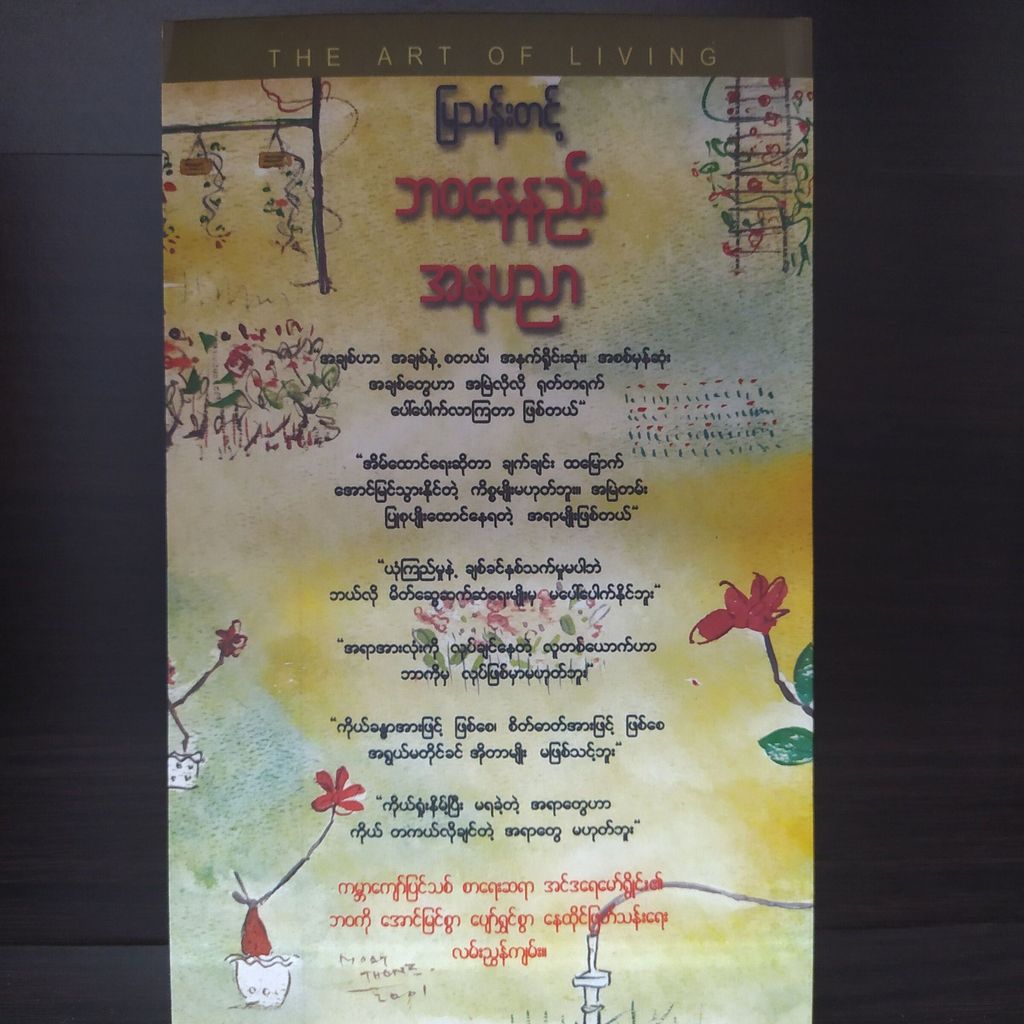 THE ART OF LIVING
မြသန်းတင့်
ဘဝနေနည်း
အနုပညာ
အချစ်ဟာ အချစ်နဲ့ စတယ်၊ အနက်ရှိုင်းဆုံး၊ အစစ်မှန်ဆုံး
အချစ်တွေဟာ အမြဲလိုလို ရုတ်တရက်
ပေါ်ပေါက်လာကြတာ ဖြစ်တယ်"
"အိမ်ထောင်ရေးဆိုတာ ချက်ချင်း ထမြောက်
အောင်မြင်သွားနိုင်တဲ့ ကိစ္စမျိုးမဟုတ်ဘူး။ အမြဲတမ်း
ပြုစုပျိုးထောင်နေရတဲ့ အရာမျိုးဖြစ်တယ်"
"ယုံကြည်မှုနဲ့ ချစ်ခင်နှစ်သက်မှုမပါဘဲ
ဘယ်လို မိတ်ဆွေဆက်ဆံရေးမျိုးမှ မပေါ်ပေါက်နိုင်ဘူး"
"အရာအားလုံးကို လုပ်ချင်နေတဲ့ လူတစ်ယောက်ဟာ
ဘာကိုမှ လုပ်ဖြစ်မှာမဟုတ်ဘူး"
"ကိုယ်ခန္ဓာအားဖြင့် ဖြစ်စေ၊ စိတ်ဓာတ်အားဖြင့် ဖြစ်စေ
အရွယ်မတိုင်ခင် အိုတာမျိုး မဖြစ်သင့်ဘူး"
"ကိုယ်ရှုံးနိမ့်ပြီး မရခဲ့တဲ့ အရာတွေဟာ
ကိုယ် တကယ်လိုချင်တဲ့ အရာတွေ မဟုတ်ဘူး"
ကမ္ဘာကျော်ပြင်သစ် စာရေးဆရာ အင်ဒရေမော်ရွိုင်း၏
ဘဝကို အောင်မြင်စွာ ပျော်ရွှင်စွာ နေထိုင်ဖြတ်သန်းရေး
လမ်းညွှန်ကျမ်း။
THONE